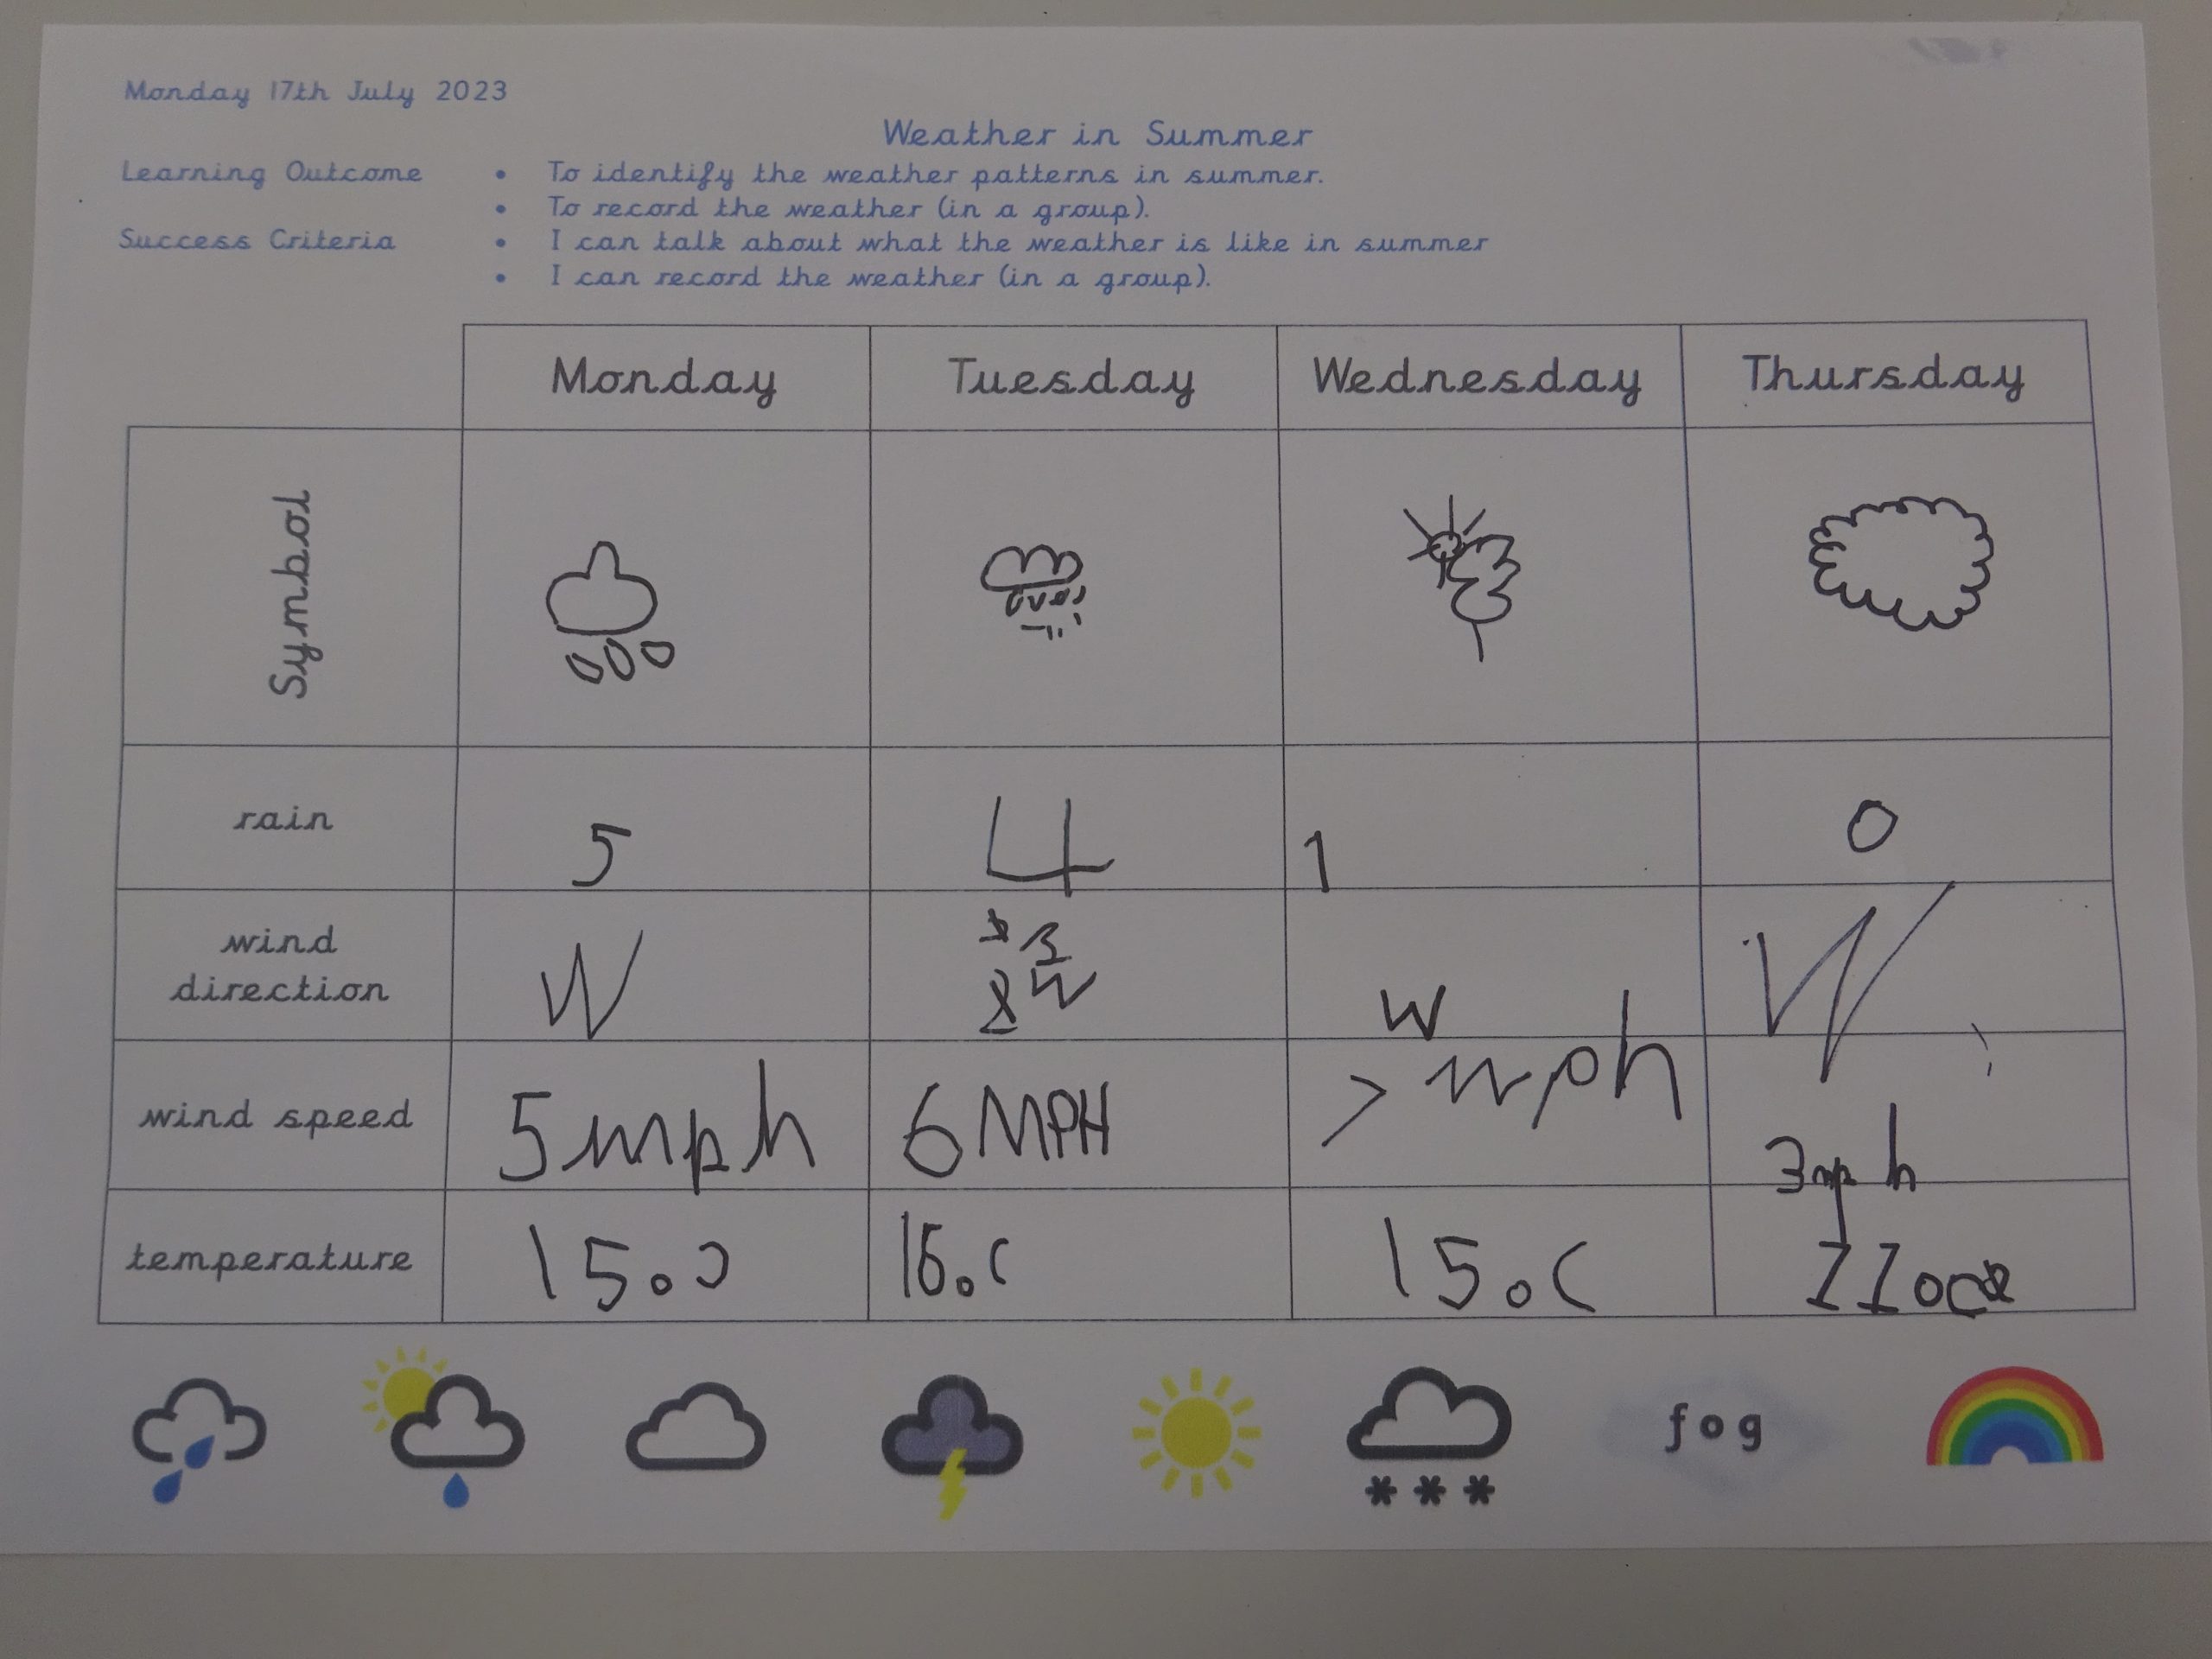 Monday 17th July 2023
Weather in Summer
Learning Outcome • To identify the weather patterns in summer.
• To record the weather (in a group).
Success Criteria • I can talk about what the weather is like in summer
• I can record the weather (in a group).
Monday Tuesday Wednesday Thursday
Symbol
rain 5 4 1 0
wind direction W W W W
wind speed 5mph 6MPH mph 3mph
temperature 15.c 16.c 15.c 11oc
fog